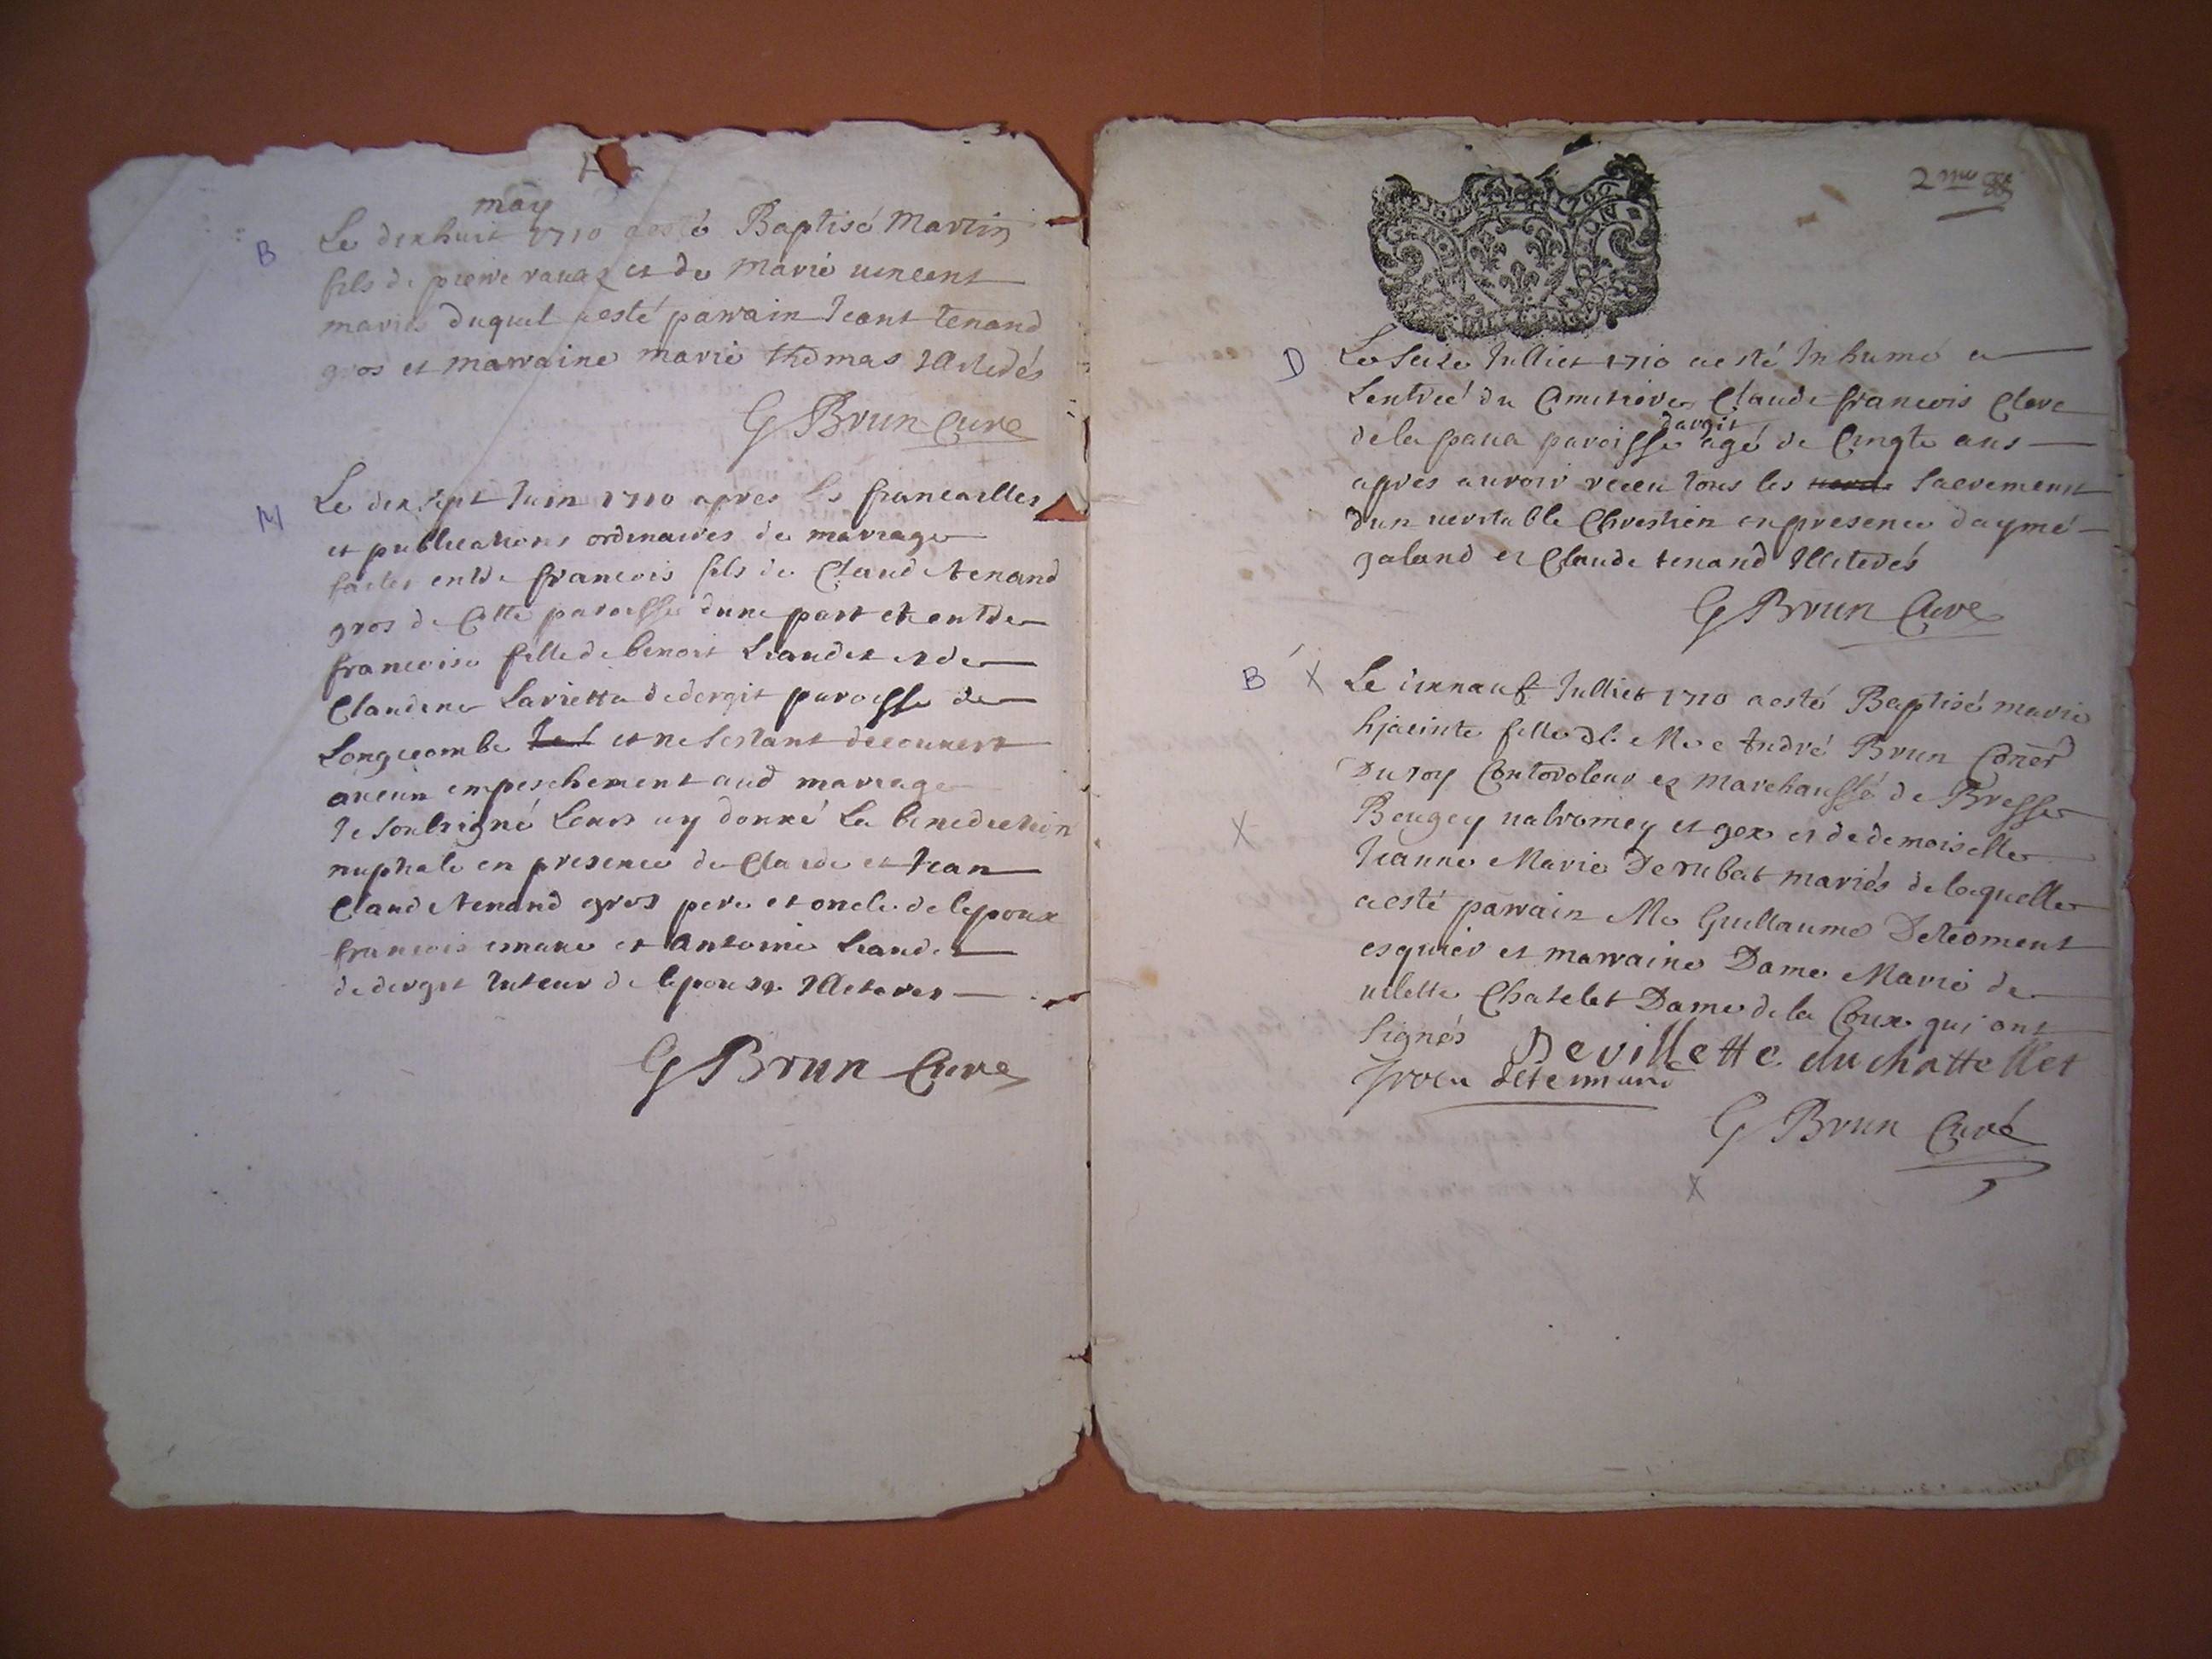 may
B Le dixhuit 1710 a esté Baptisé Martin
fils de pierre et de Marie uincent
mariés duquel a esté parrain Jeant tenand
gros et marraine marie thomas Illiterés
G Brun Curé
M Le dix sept Juin 1710 apres les fiancailles
et publications ordinaires de mariage
faites entre francois fils de Claude tenand
gros de Cette paroisse dune part et entre
francoise fille de benoit Liaudet et de
Claudine Larietta de dergit paroisse de
Longecombe et ne sestant decouuert
aucun empeschement aud mariage
Je soubsigné Leurs ay donné La benediction
nuptiale en presence de Claude et Jean
Claude tenand gros pere et oncle de lepoux
francois et Antoine Liaudet
de dergit tuteur de lepouse Illiteres
G Brun Curé
2
D Le Seize Julliet 1710 a esté Inhumé a
Lentreé du Cimetiere Claude francois Clerc
dergit
de la paua paroisse agé de Cingte ans
apres auroir receu tous les Sacrements
dun ueritable Chrestien en presence daymé
galand et Claude tenand Illiterés
G Brun Curé
B X Le dixneuf Julliet 1710 a esté Baptisé marie
hjacinte fille de Mre André Brun Coner
Du roy Contoroleur en Marchaussé de Bresse
X Beugey ualromey et gex et de demoiselle
Jeanne Marie Derubat mariés de laquelle
a esté parrain Me Guillaume
esquier et marraine Dame Marie de
uilette Chatelet Dame de la Coux qui ont
signés Devillette du chattellet
G Brun Curé
X